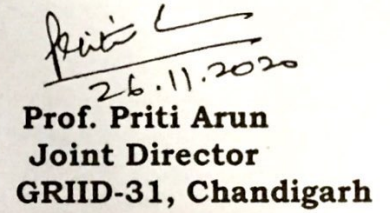 Priti
26.11.2020
Prof. Priti Arun
Joint Director
GRIID-31, Chandigarh